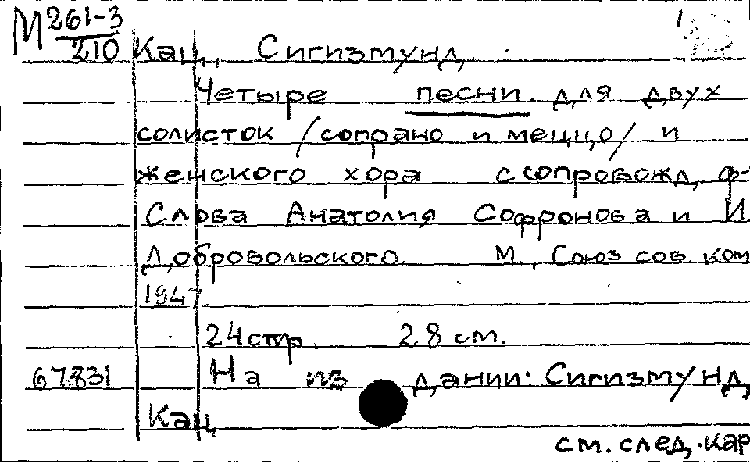 М 261-3
210
Кац, Сигизмунд.
Четыре песни. для двух
солисток /сопрано и меццо/ и
женского хора с сопровожд. ф-
Слова Анатолия Софронова и И
Добровольского. М., Союз сов ком
1947
24 стр. 28 см.
67831 На издании: Сигизмунд
Кац
см. след. кар